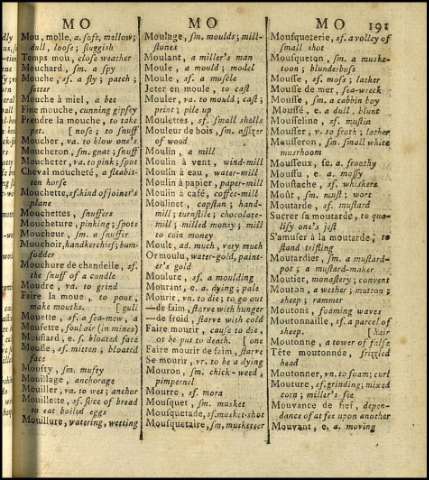 MO
MO
MO
191
Mou, molle, a. soft, mellow;
dull, loose; sluggish
Temps mou, close weather
Mouchard, sm. a spy
Mouche, sf. a fly; patch;
Mouche à miel, a bee
Fine mouche, cunning gipsey
Prendre la mouche, to take
pet. [nose; to snuff
Moucher, va. to blow one's
Moucheron, sm. gnat; snuff
Moucheter, va. to pink; spot
Cheval moucheté, a
horse
Mouchette, sf. kind of joiner's
plane
Mouchettes, snuffers
Moucheture, pinking; spots
Moucheur, sm. a snuffer
Mouchoir, handkerchief; hum-
Mouchure de chandelle, sf.
the snuff of a candle
Moudre, va. to grind
Faire la moue, to pout,
make mouths. [gull
Mouette, sf. a sea-mew, a
Moufette, foul air (in mines)
Mouflard, e. s. bloated face
Moufle, sf. mitten; bloated
face
Moufty, sm. mufty
Mouillage, anchorage
Mouiller, va. to wet; anchor
Mouillette, sf. slice of bread
to eat boiled eggs
Mouillure, watering, wetting
Moulage, sm. moulds; mill-
stones
Moulant, a miller's man
Moule, a mould; model
Moule, sf. a muscle
Jeter en moule, to cast
Mouler, va. to mould; cast;
print; pile up
Moulettes, sf. small shells
Mouleur de bois, sm. assizer
of wood
Moulin, a mill
Moulin à vent, wind-mill
Moulin à eau, water-mill
Moulin à papier, paper-mill
Moulin à café, coffee-mill
Moulinet, capstan; hand-
mill; turnstile; chocolate-
mill; milled money; mill
to coin money
Moult, ad. much, very much
Or moulu, water-gold, paint-
er's gold
Moulure, sf. a moulding
Mourant, e. a. dying; pale
Mourir, vn. to die; to go out
—de faim, starve with hunger
—de froid, starve with cold
Faire mourir, cause to die,
or be put to death. [one
Faire mourir de faim, starve
Se mourir, vr. to be a dying
Mouron, sm. chick-weed,
pimpernel
Mourre, sf. mora
Mousquet, sm. musket
Mousquetade, sf. musket-shot
Mousquetaire, sm. musketeer
Mousqueterie, sf. a volley of
small shot
Mousqueton, sm. a muske-
toon; blunderbuss
Mousse, sf. moss; lather
Mousse de mer, sea-wreck
Mousse, sm. a cabbin boy
Mousse, e. a. dull, blunt
Mousseline, sf. muslin
Mousser, v. to froth; lather
Mousseron, sm. small white
mushroom
Mousseux, se, a. froothy
Moussu, e. a. mossy
Moustache, sf. whiskers
Moût, sm. must; wort
Moutarde, sf. mustard
Sucrer sa moutarde, to qua-
lify one's jest
S'amuser à la moutarde, to
stand trifling
Moutardier, sm. a mustard-
pot; a mustard-maker
Moutier, monastery; convent
Mouton, a wether; mutton;
sheep; rammer
Moutons, foaming waves
Moutonnaille, sf. a parcel of
sheep. [hair
Moutonne, a tower of false
Tête moutonnée, frizzled
head
Moutonner, vn. to foam; curl
Mouture, sf. grinding; mixed
corn; miller's fee
Mouvance de fief, depen-
dance of at fee upon another
Mouvant, e. a. moving